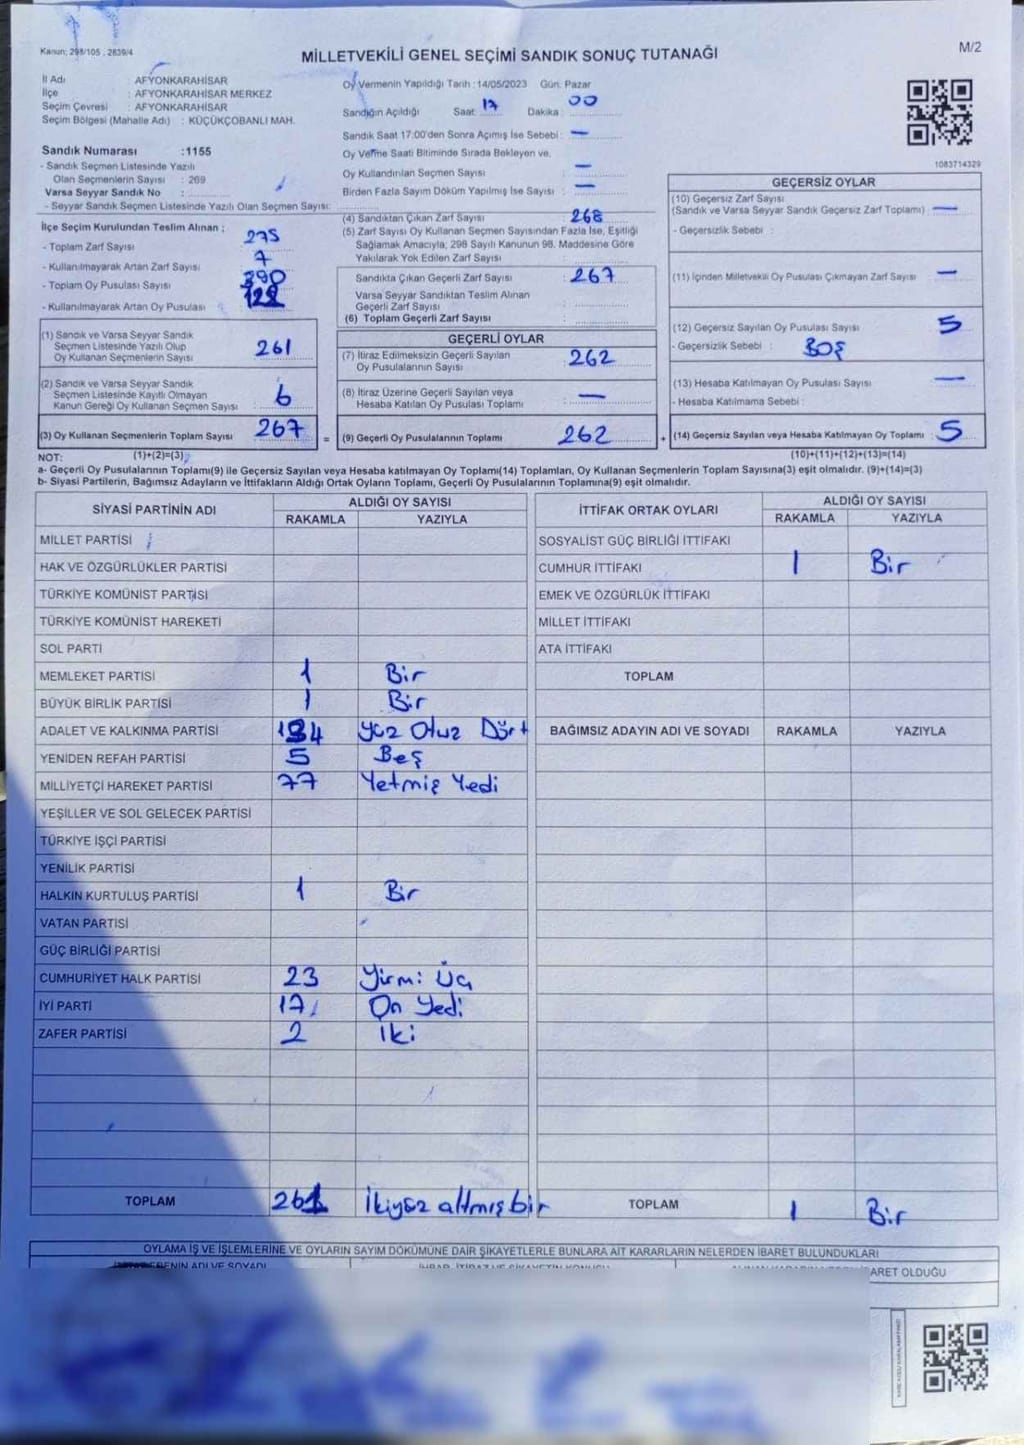 Kanun: 298/105 , 2839/4
MİLLETVEKİLİ GENEL SEÇİMİ SANDIK SONUÇ TUTANAĞI
M/2
İl Adı : AFYONKARAHİSAR
İlçe : AFYONKARAHİSAR MERKEZ
Seçim Çevresi : AFYONKARAHİSAR
Seçim Bölgesi (Mahalle Adı) : KÜÇÜKÇOBANLI MAH.
Sandık Numarası :1155
- Sandık Seçmen Listesinde Yazılı
Olan Seçmenlerin Sayısı : 269
Varsa Seyyar Sandık No :
- Seyyar Sandık Seçmen Listesinde Yazılı Olan Seçmen Sayısı:
İlçe Seçim Kurulundan Teslim Alınan ;
- Toplam Zarf Sayısı 275
- Kullanılmayarak Artan Zarf Sayısı 7
- Toplam Oy Pusulası Sayısı 390
- Kullanılmayarak Artan Oy Pusulası 122
(1) Sandık ve Varsa Seyyar Sandık
Seçmen Listesinde Yazılı Olup
Oy Kullanan Seçmenlerin Sayısı 261
(2) Sandık ve Varsa Seyyar Sandık
Seçmen Listesinde Kayıtlı Olmayan
Kanun Gereği Oy Kullanan Seçmen Sayısı 6
(3) Oy Kullanan Seçmenlerin Toplam Sayısı 267 =
Oy Vermenin Yapıldığı Tarih : 14/05/2023 Gün: Pazar
Sandığın Açıldığı Saat: 17 Dakika : 00
Sandık Saat 17:00'den Sonra Açımış İse Sebebi : —
Oy Verme Saati Bitiminde Sırada Bekleyen ve.
Oy Kullandırılan Seçmen Sayısı : —
Birden Fazla Sayım Döküm Yapılmış İse Sayısı : —
(4) Sandıktan Çıkan Zarf Sayısı : 268
(5) Zarf Sayısı Oy Kullanan Seçmen Sayısından Fazla İse, Eşitliği
Sağlamak Amacıyla, 298 Sayılı Kanunun 98. Maddesine Göre
Yakılarak Yok Edilen Zarf Sayısı :
Sandıkta Çıkan Geçerli Zarf Sayısı : 267
Varsa Seyyar Sandıktan Teslim Alınan
Geçerli Zarf Sayısı
(6) Toplam Geçerli Zarf Sayısı :
GEÇERLİ OYLAR
(7) İtiraz Edilmeksizin Geçerli Sayılan
Oy Pusulalarının Sayısı : 262
(8) İtiraz Üzerine Geçerli Sayılan veya
Hesaba Katılan Oy Pusulası Toplamı : —
(9) Geçerli Oy Pusulalarının Toplamı 262 +
1083714329
GEÇERSİZ OYLAR
(10) Geçersiz Zarf Sayısı
(Sandık ve Varsa Seyyar Sandık Geçersiz Zarf Toplamı) —
- Geçersizlik Sebebi :
(11) İçinden Milletvekili Oy Pusulası Çıkmayan Zarf Sayısı : —
(12) Geçersiz Sayılan Oy Pusulası Sayısı : 5
- Geçersizlik Sebebi : BOŞ
(13) Hesaba Katılmayan Oy Pusulası Sayısı : —
- Hesaba Katılmama Sebebi :
(14) Geçersiz Sayılan veya Hesaba Katılmayan Oy Toplamı : 5
NOT: (1)+(2)=(3) (10)+(11)+(12)+(13)=(14)
a- Geçerli Oy Pusulalarının Toplamı(9) ile Geçersiz Sayılan veya Hesaba katılmayan Oy Toplamı(14) Toplamları, Oy Kullanan Seçmenlerin Toplam Sayısına(3) eşit olmalıdır. (9)+(14)=(3)
b- Siyasi Partilerin, Bağımsız Adayların ve İttifakların Aldığı Ortak Oyların Toplamı, Geçerli Oy Pusulalarının Toplamına(9) eşit olmalıdır.
SİYASİ PARTİNİN ADI ALDIĞI OY SAYISI
RAKAMLA YAZIYLA
MİLLET PARTİSİ
HAK VE ÖZGÜRLÜKLER PARTİSİ
TÜRKİYE KOMÜNİST PARTİSİ
TÜRKİYE KOMÜNİST HAREKETİ
SOL PARTİ
MEMLEKET PARTİSİ 1 Bir
BÜYÜK BİRLİK PARTİSİ 1 Bir
ADALET VE KALKINMA PARTİSİ 134 Yüz Otuz Dört
YENİDEN REFAH PARTİSİ 5 Beş
MİLLİYETÇİ HAREKET PARTİSİ 77 Yetmiş Yedi
YEŞİLLER VE SOL GELECEK PARTİSİ
TÜRKİYE İŞÇİ PARTİSİ
YENİLİK PARTİSİ
HALKIN KURTULUŞ PARTİSİ 1 Bir
VATAN PARTİSİ
GÜÇ BİRLİĞİ PARTİSİ
CUMHURİYET HALK PARTİSİ 23 Yirmi Üç
İYİ PARTİ 17 On Yedi
ZAFER PARTİSİ 2 İki
TOPLAM 261 İkiyüz altmış bir
İTTİFAK ORTAK OYLARI ALDIĞI OY SAYISI
RAKAMLA YAZIYLA
SOSYALİST GÜÇ BİRLİĞİ İTTİFAKI
CUMHUR İTTİFAKI 1 Bir
EMEK VE ÖZGÜRLÜK İTTİFAKI
MİLLET İTTİFAKI
ATA İTTİFAKI
TOPLAM
BAĞIMSIZ ADAYIN ADI VE SOYADI RAKAMLA YAZIYLA
TOPLAM 1 Bir
OYLAMA İŞ VE İŞLEMLERİNE VE OYLARIN SAYIM DÖKÜMÜNE DAİR ŞİKAYETLERLE BUNLARA AİT KARARLARIN NELERDEN İBARET BULUNDUKLARI
ADI VE SOYADI
İBARET OLDUĞU